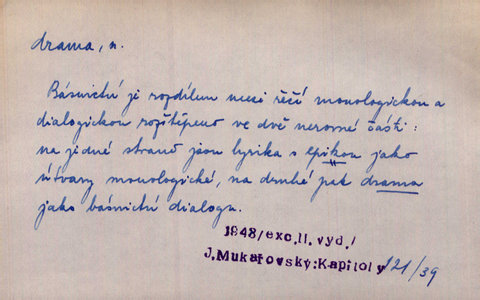 drama, n.
Básnictví je rozdílem mezi řečí monologickou a
dialogickou rozštěpeno ve dvě nerovné části:
na jedné straně jsou lyrika s epikou jako
útvary monologické, na druhé pak drama
jako básnictví dialogu.
1948/exc.II.vyd./
J.Mukařovský:Kapitoly 121/39